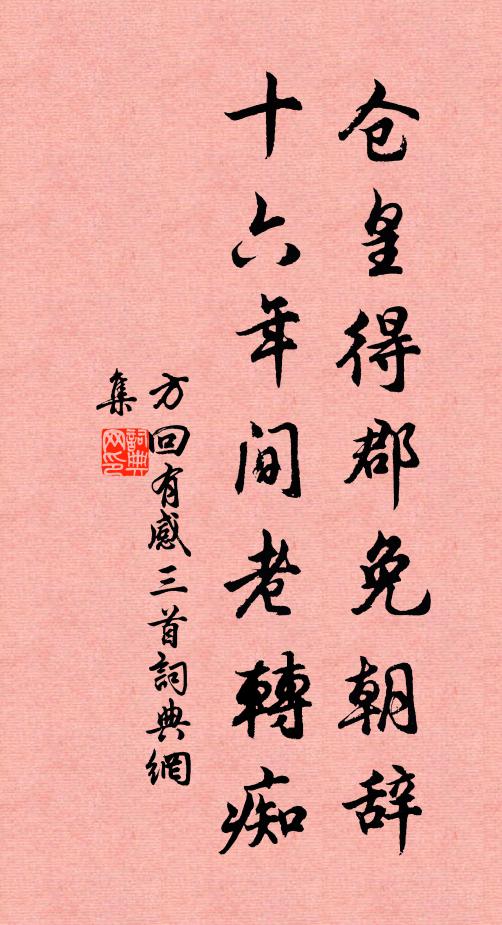 仓皇得郡免朝辞
十六年间老轉痴
方回有感三首詞典網
集
詞典
网印